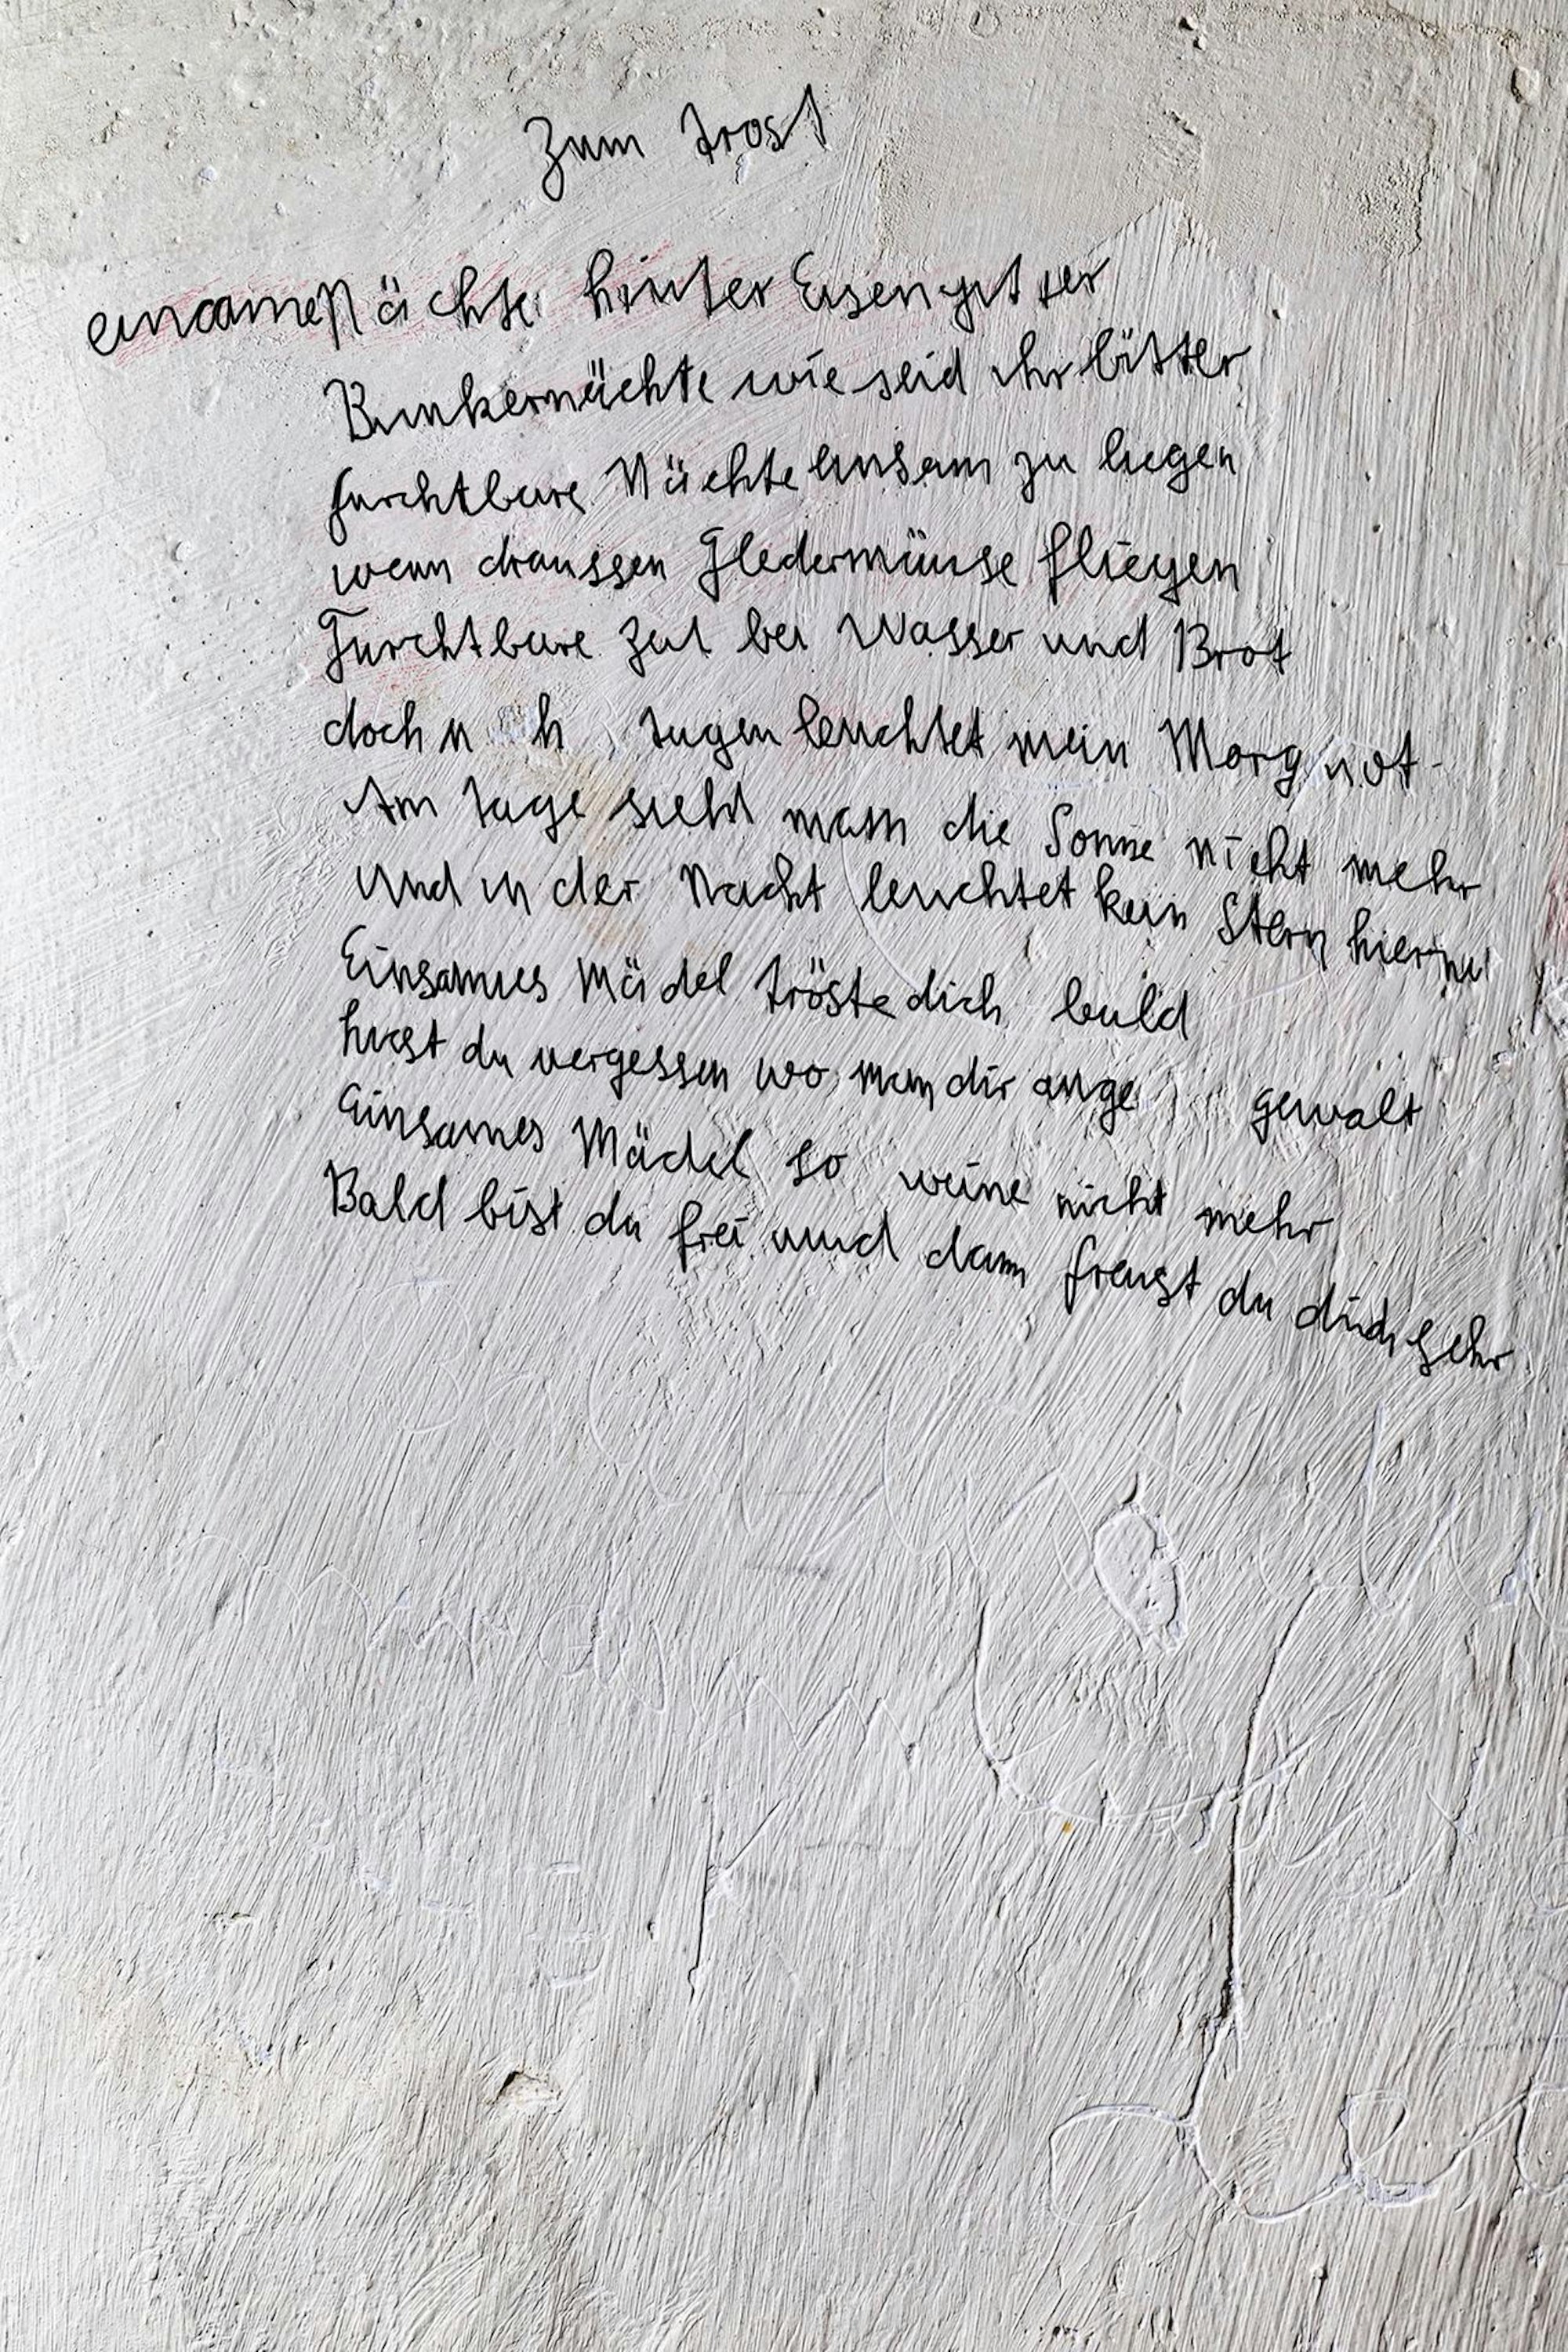 Zum Trost
einsame Nächte hinter Eisengitter
Bunkernächte wie seid ihr bitter
furchtbare Nächte einsam zu liegen
wenn draussen Fledermäuse fliegen
Furchtbare Zeit bei Wasser und Brot
doch n h tagen leuchtet mein Morg not
Am Tage sieht man die Sonne nicht mehr
Und in der Nacht leuchtet kein Stern
Einsames Mädel tröste dich bald
hast du vergessen wo man dir ange gewalt
Einsames Mädel so weine nicht mehr
Bald bist du frei und dann freust du dich sehr